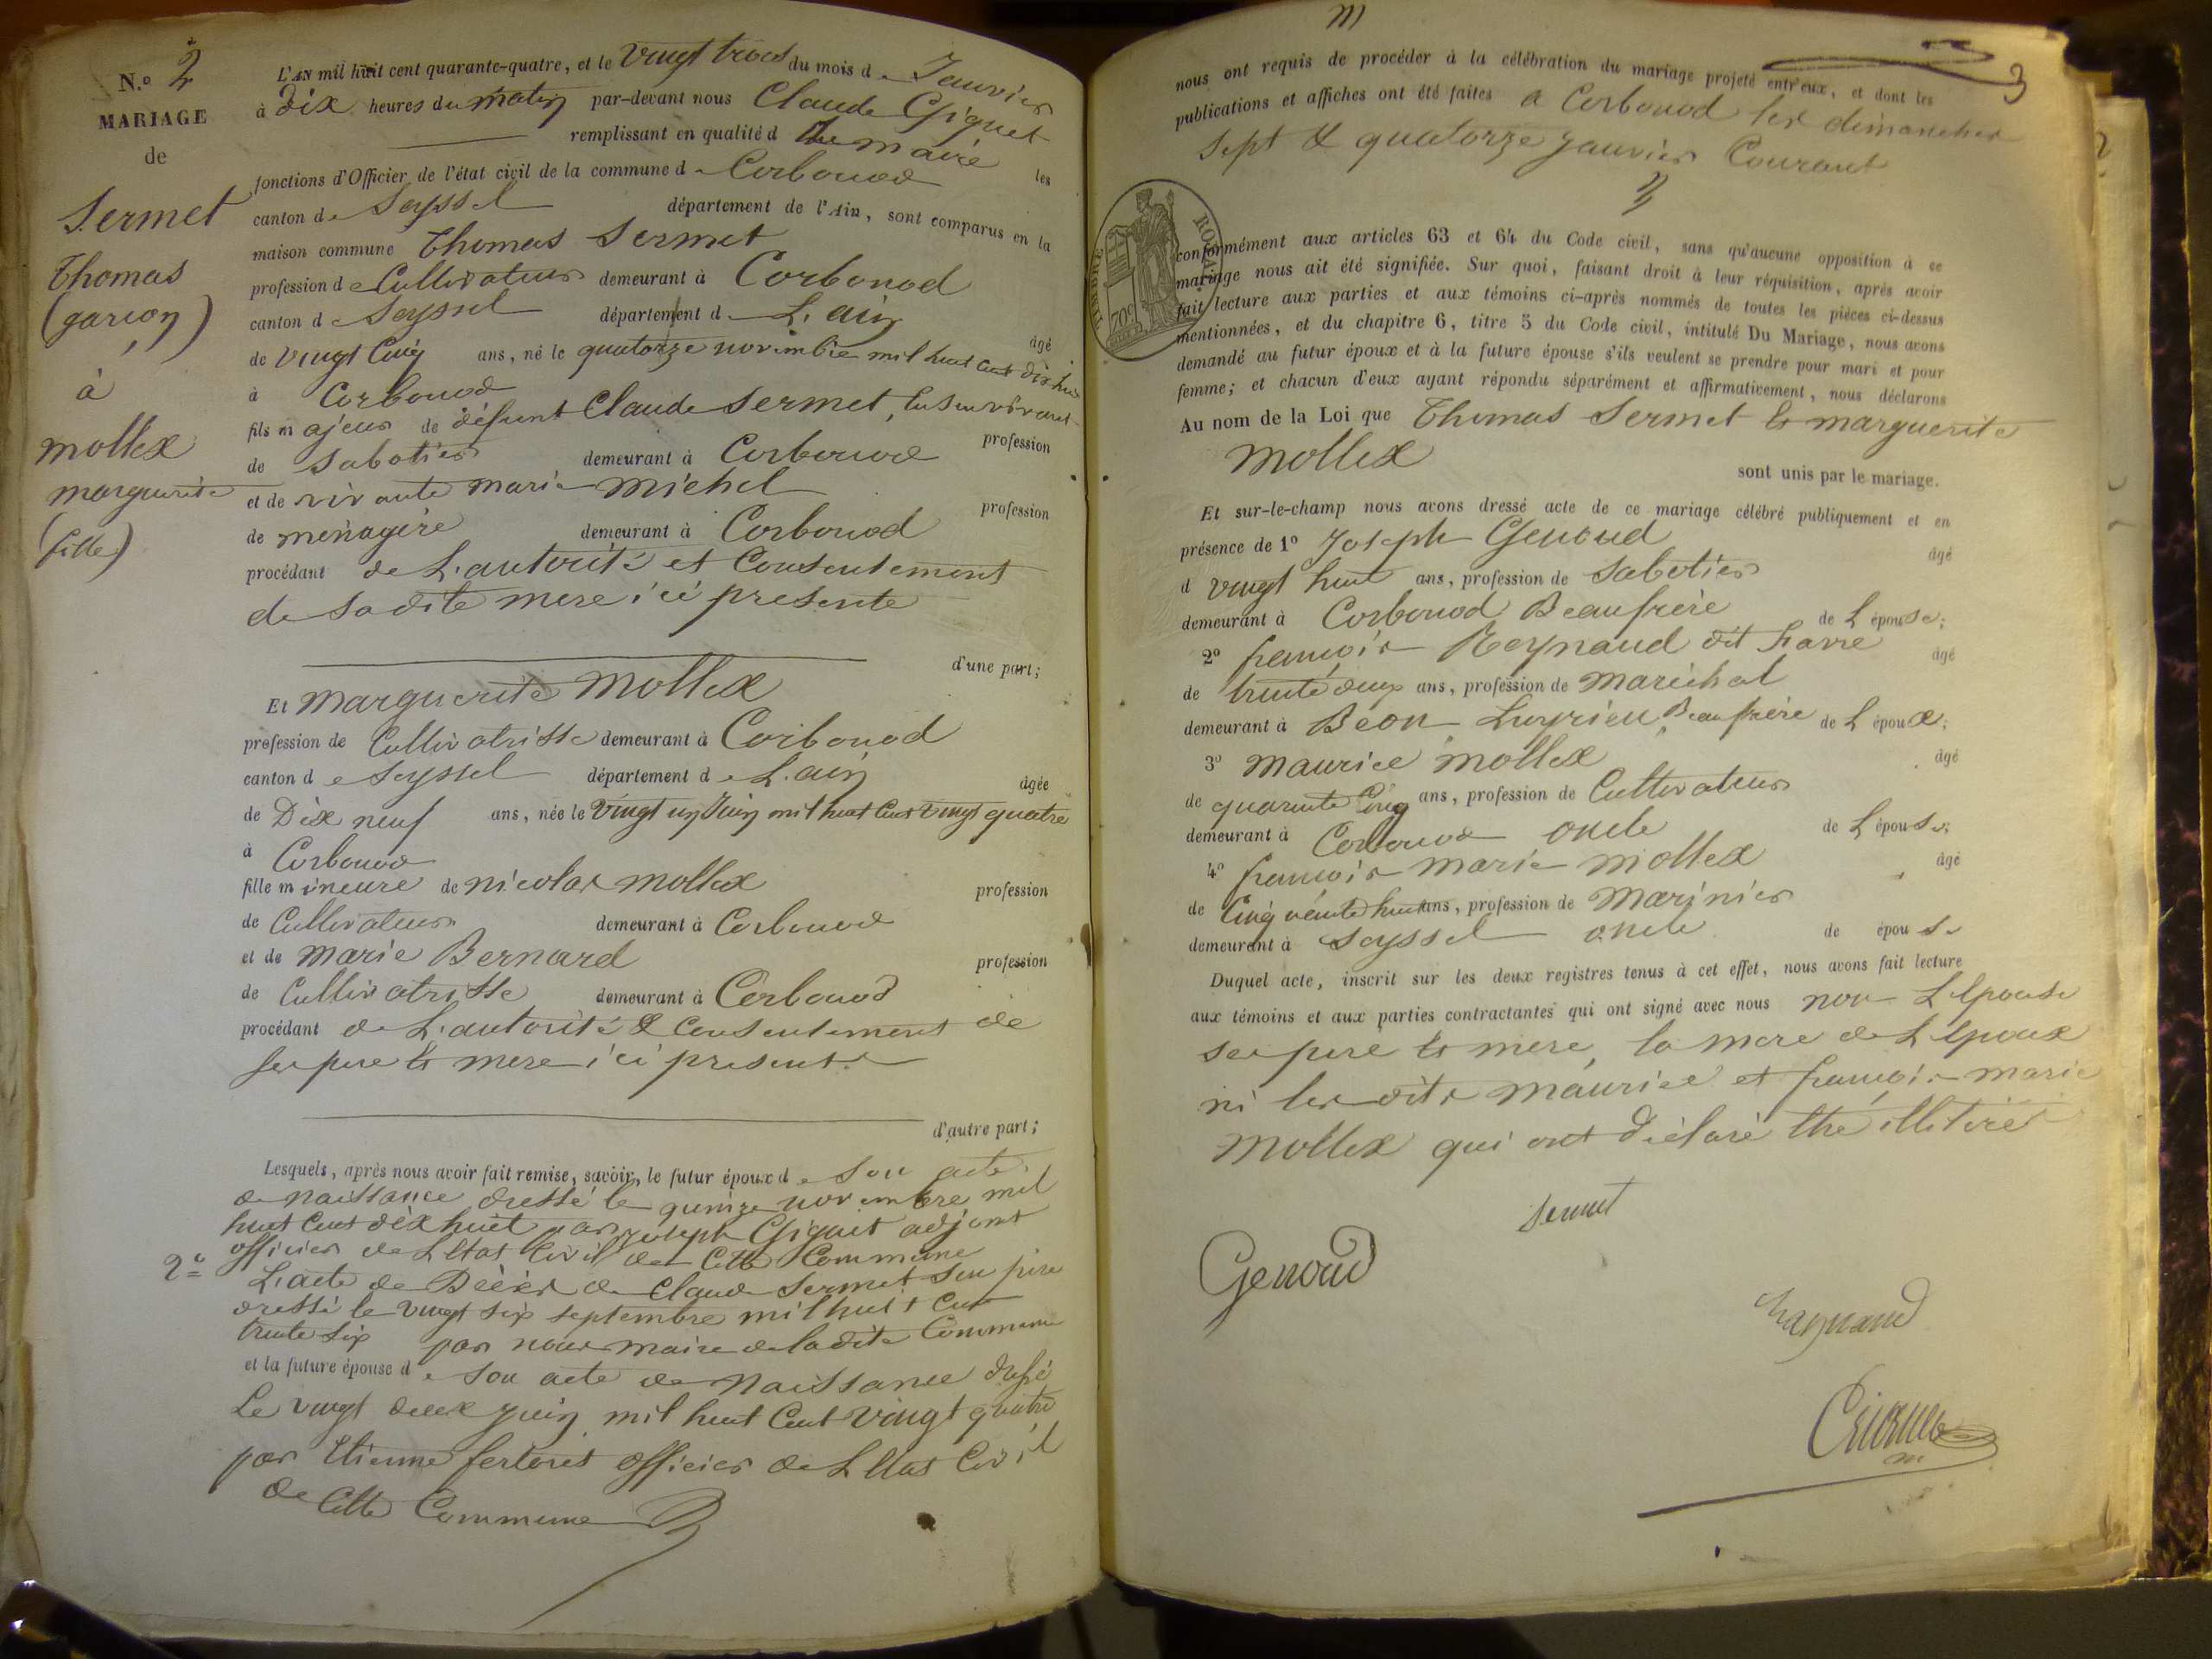 N.o 2
MARIAGE
de
Sermet
Thomas
(garçon)
à
mollex
marguerite
(fille)
L'AN mil huit cent quarante-quatre, et le vingt trois du mois de Janvier
à dix heures du matin par-devant nous Claude Giguet
remplissant en qualité de maire les
fonctions d'Officier de l'état civil de la commune de Corbonod
canton de Seyssel département de l'Ain, sont comparus en la
maison commune Thomas Sermet
profession de Cultivateur demeurant à Corbonod
canton de Seyssel département de L'ain âgé
de vingt Cinq ans, né le quatorze novembre mil huit cent dix huit
à Corbonod
fils majeur de défunt Claude Sermet, lui survivant profession
de Sabotier demeurant à Corbonod
et de vivante marie michel profession
de menagère demeurant à Corbonod
procédant de L'autorité et Consentement
de sadite mere ici presente
d'une part;
Et marguerite mollex
profession de Cultivatrisse demeurant à Corbonod
canton de Seyssel département de L'ain âgée
de Dix neuf ans, née le vingt un Juin mil huit cent vingt quatre
à Corbonod
fille mineure de nicolas mollex profession
de Cultivateur demeurant à Corbonod
et de marie Bernard profession
de Cultivatrisse demeurant à Corbonod
procédant de L'autorité & Consentement de
ses pere et mere ici presents
d'autre part;
Lesquels, après nous avoir fait remise, savoir, le futur époux de son acte
de naissance dressé le quinze novembre mil
huit cent dix huit par joseph Giguet adjoint
officier de L'Etat Civil de Cette Commune
2° L'acte de Décès de Claude Sermet son pere
dressé le vingt six septembre mil huit cent
trente six par nous maire de ladite Commune
et la future épouse de son acte de naissance dressé
Le vingt deux juin mil huit Cent vingt quatre
par Etienne ferloret officier de L'Etat Civil
de Cette Commune
3
nous ont requis de procéder à la célébration du mariage projeté entr'eux, et dont les
publications et affiches ont été faites a Corbonod les dimanches
sept & quatorze janvier Courant
TIMBRE ROYAL
70c
conformément aux articles 63 et 64 du Code civil, sans qu'aucune opposition à ce
mariage nous ait été signifiée. Sur quoi, faisant droit à leur réquisition, après avoir
fait lecture aux parties et aux témoins ci-après nommés de toutes les pièces ci-dessus
mentionnées, et du chapitre 6, titre 5 du Code civil, intitulé Du Mariage, nous avons
demandé au futur époux et à la future épouse s'ils veulent se prendre pour mari et pour
femme; et chacun d'eux ayant répondu séparément et affirmativement, nous déclarons
Au nom de la Loi que Thomas Sermet et marguerite
mollex
sont unis par le mariage.
Et sur-le-champ nous avons dressé acte de ce mariage célébré publiquement et en
présence de 1o Joseph Genoud âgé
d vingt huit ans, profession de Sabotier
demeurant à Corbonod Beaufrère de L'épouse;
2o françois Reynaud dit Favre âgé
de trente deux ans, profession de maréchal
demeurant à Béon Luyrieu, Beaufrère de L'époux;
3o maurice mollex âgé
de quarante Cinq ans, profession de Cultivateur
demeurant à Corbonod oncle de L'épouse;
4o françois marie mollex âgé
de Cinquante huit ans, profession de marinier
demeurant à Seyssel oncle de épouse
Duquel acte, inscrit sur les deux registres tenus à cet effet, nous avons fait lecture
aux témoins et aux parties contractantes qui ont signé avec nous non L'epouse
ses pere et mere, la mere de L'epoux
ni les dits maurice et françois marie
mollex qui ont déclaré être illitérés
Sermet
Genoud